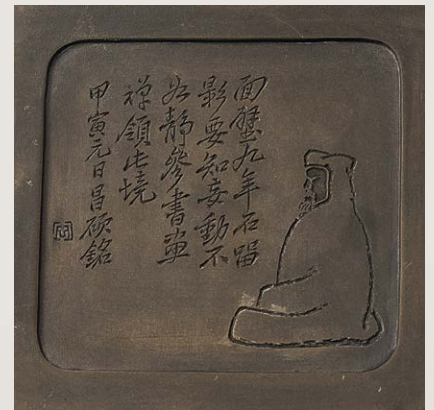 面壁九年石留
影要知妄動不
如靜參書畫
禪領此境
甲寅元日昌碩銘